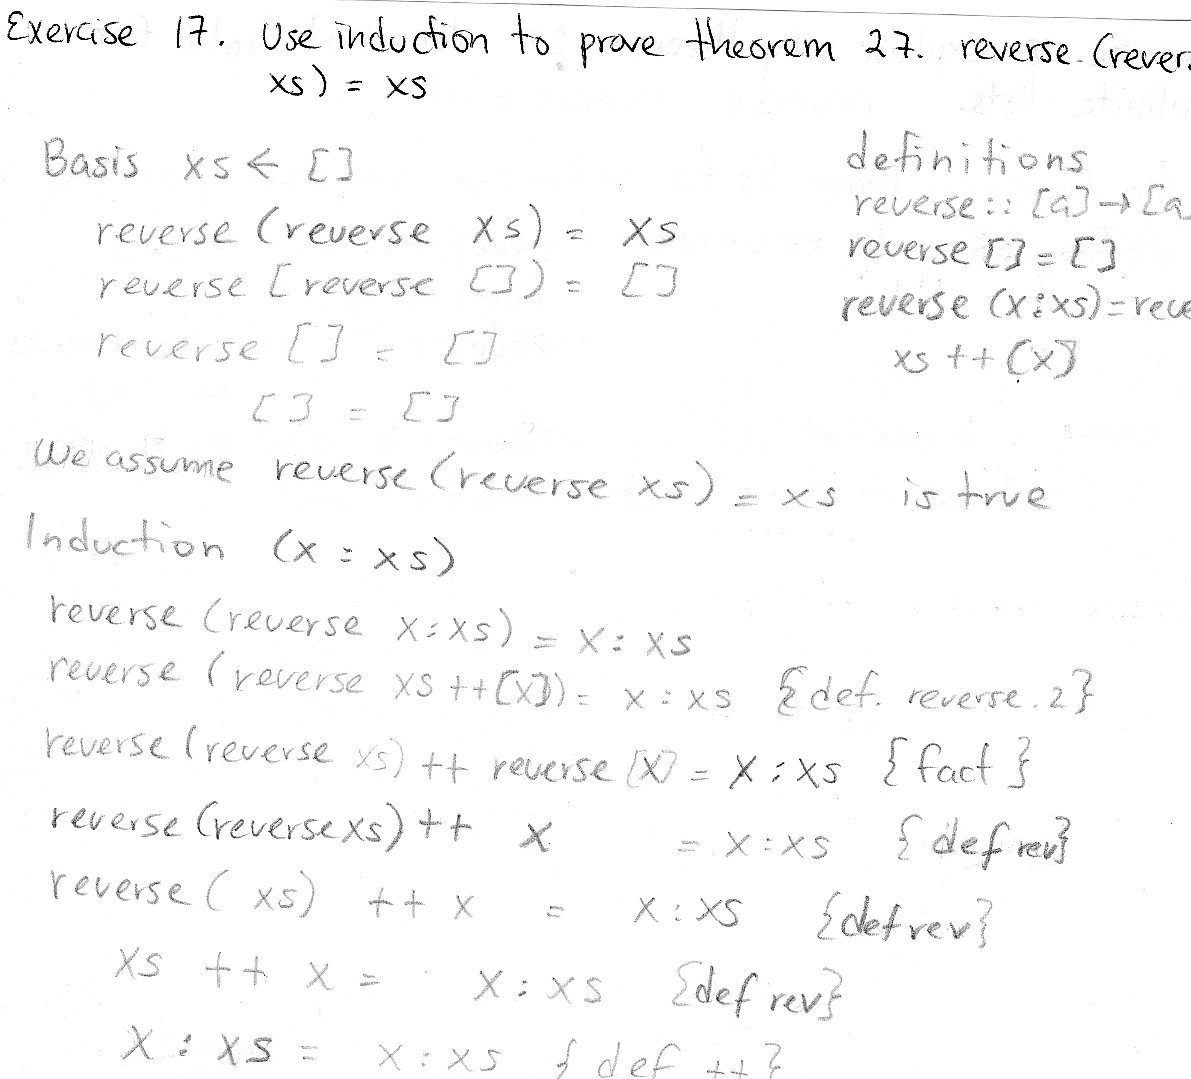 Exercise 17. Use induction to prove theorem 27. reverse (rever
xs) = xs
Basis xs ← []
reverse (reverse xs) = xs
reverse [reverse []) = []
reverse [] = []
[] = []
definitions
reverse :: [a] → [a
reverse [] = []
reverse (x:xs) = reve
xs ++ (x]
We assume reverse (reverse xs) = xs is true
Induction (x : xs)
reverse (reverse x:xs) = x: xs
reverse (reverse xs ++ [x]) = x : xs {def. reverse.2}
reverse (reverse xs) ++ reverse [x] = x : xs {fact}
reverse (reverse xs) ++ x = x:xs {def rev}
reverse ( xs) ++ x = x:xs {def rev}
xs ++ x = x:xs {def rev}
x : xs = x:xs {def ++}